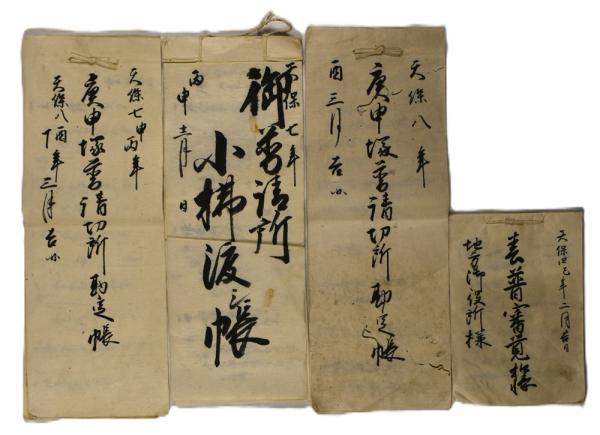 天保四巳年二月吉日
春普
地方御役所様
天保八年
庚申塚普請切所勘定帳
酉三月吉日
天保七年
御普請所
小拂渡帳
丙申 月 日
天保七申丙年
庚申塚普請切所勘定帳
天保八酉丁年三月吉日